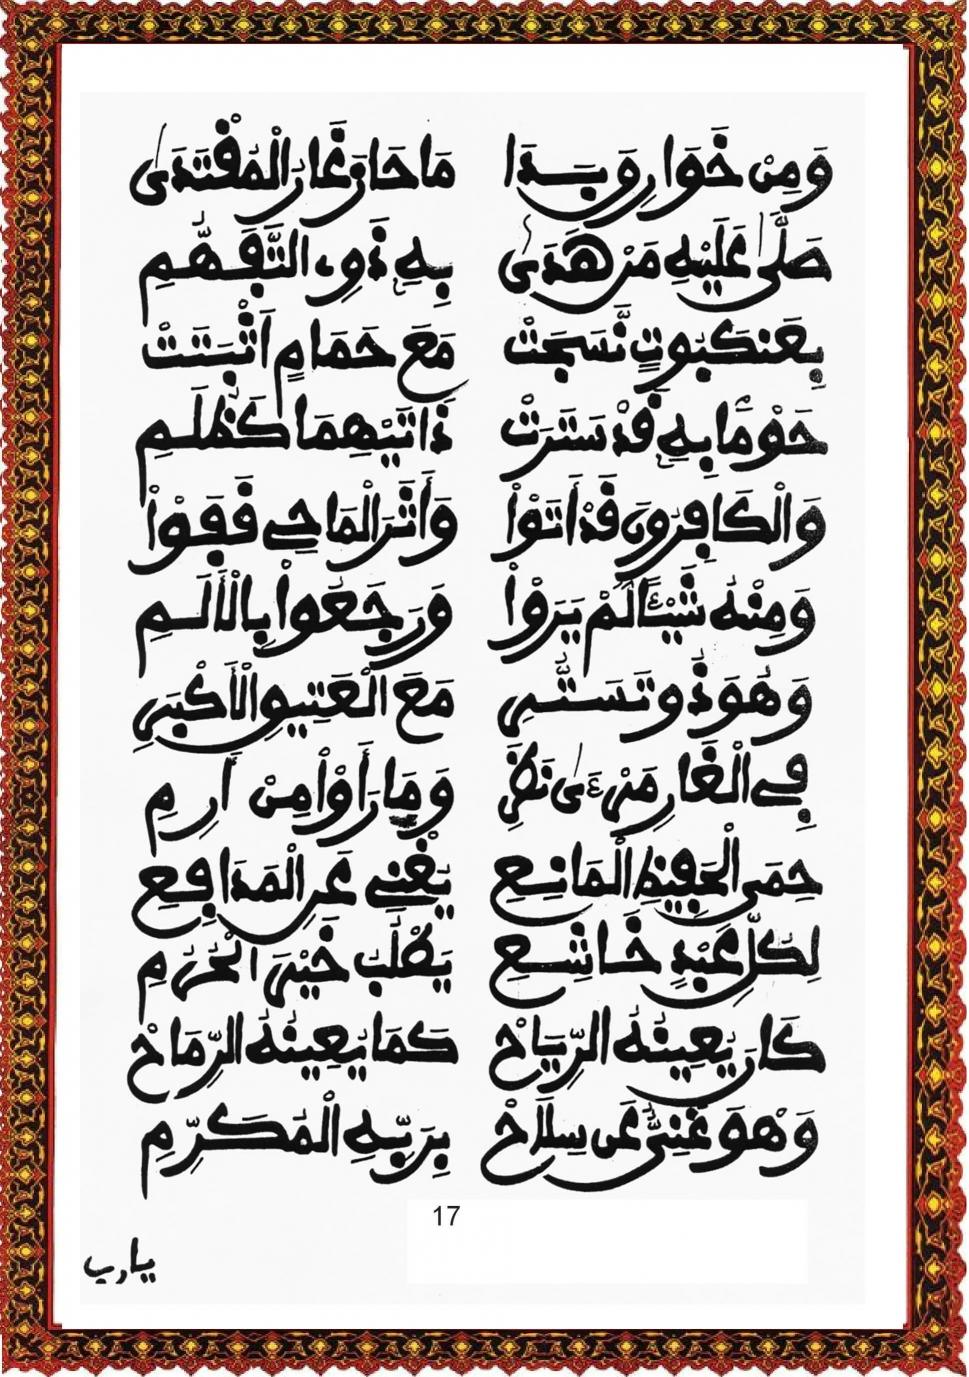 وَمِنْ خَوَارِقٍ بَدَا مَا حَازَ غَارُ الْمُقْتَدَى
صَلَّى عَلَيْهِ مَنْ هَدَى بِهِ ذَوِي التَّفَهُّمِ
بِعَنْكَبُوتٍ نَّسَجَتْ مَعَ حَمَامٍ اَثْبَتَتْ
حَوْمًا بِهِ قَدْ سَتَرَتْ ذَاتَيْهِمَا كَظُلَمِ
وَالْكَافِرُونَ قَدْ أَتَوْاْ وَأَثَرَ الْمَاحِي قَفَوْاْ
وَمِنْهُ شَيْئًا لَمْ يَرَوْاْ وَرَجَعُواْ بِالْأَلَمِ
وَهُوَ ذُو تَسَتُّرِ مَعَ الْعَتِيقِ الْأَكْبَرِ
فِي الْغَارِ مَنْ ءَى نَكْرِ وَمَا رَأَوْاْ مِنْ أَرِمِ
حِمَى الْحَفِيظِ الْمَانِعِ يُغْنِي عَنِ الْمَدَافِعِ
لِكُلِّ عَبْدٍ خَاشِعِ يَطْلُبُ خَيْرَ الْحُرُمِ
كَانَ يُعِينُهُ الرِّيَاحْ كَمَا يُعِينُهُ الرِّمَاحْ
وَهْوَ غَنِيٌّ عَن سِلَاحْ بِرَبِّهِ الْمُكَرِّمِ
17
يارب